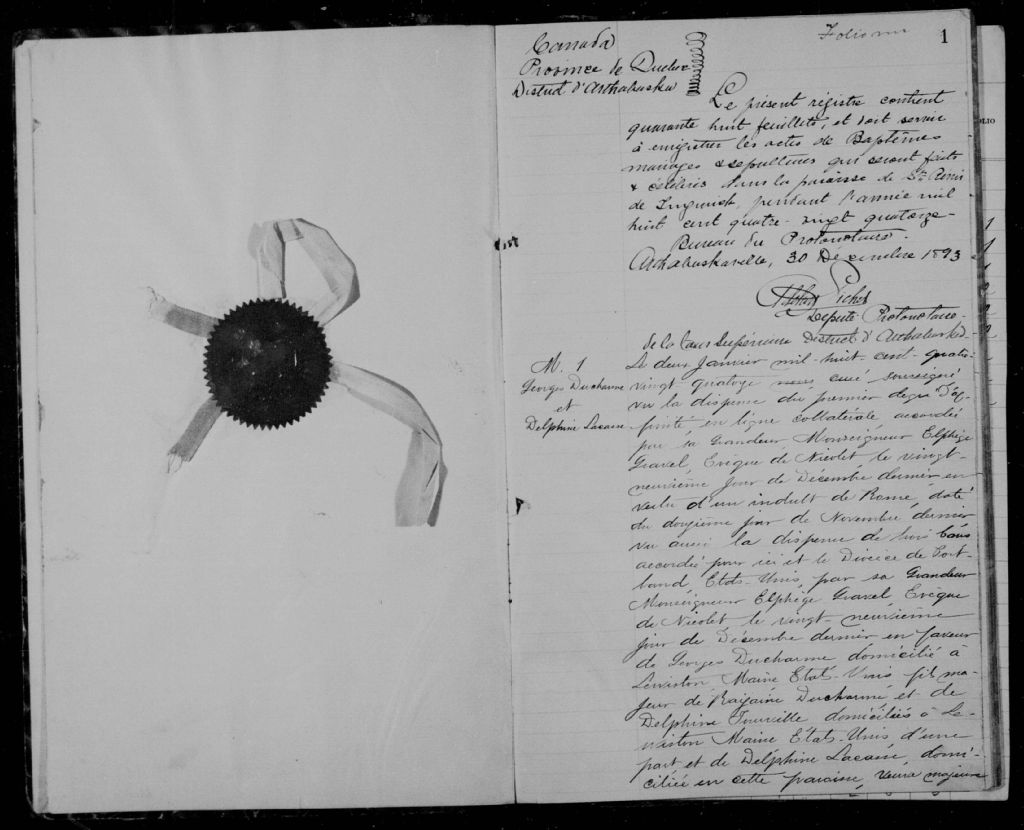 Canada
Province de Québec
District d'Arthabaska
Folio
1
Le présent régistre contient
quarante huit feuillets, et doit servir
à enrigistrer les actes de Baptêmes
mariages & sépultures qui seront faits
& célébrés dans la paroisse de St. Rémi
de Tingwick, pendant l'année mil
huit cent quatre-vingt quatorze-
Bureau du Protonotaire.
Arthabaskaville, 30 Décembre 1893
Député Protonotaire
de la Cour Supérieure District d'Arthabaska-
M. 1
Georges Ducharme
et
Delphine Lacasse
Le deux Janvier mil-huit-cent-quatre
vingt-quatorze nous curé soussigné
vu la dispense du premier degré d'af-
finité en ligne collatérale accordée
par sa Grandeur Monseigneur Elphège
Gravel, Evêque de Nicolet le vingt-
neuvième jour de Décembre dernier en
vertu d'un indult de Rome, daté
du douzième jour de Novembre dernier
vu aussi la dispense de trois bans
accordée pour ici et le Diocèse de Port-
land, Etats-Unis, par sa Grandeur
Monseigneur Elphège Gravel, Evêque
de Nicolet, le vingt-neuvième
jour de Décembre dernier en faveur
de Georges Ducharme domicilié à
Lewiston Maine Etats-Unis fils ma-
jeur de Ducharme et de
Delphine Tourville domiciliés à Le-
wiston Maine Etats-Unis d'une
part et de Delphine Lacasse, domi-
ciliée en cette paroisse, veuve majeure
OLIO